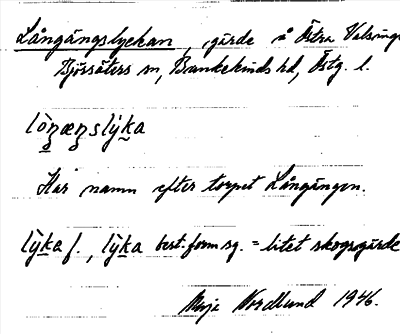 Långängslyckan, gärde å Östra
Björsäters sn, Bankekinds hd, Östg. l.
lòŋæŋslýka
Har namn efter torpet Långängen.
lỳka f., lỳka best. form sg. = litet skogsgärde
Maja Nordlund 1946.